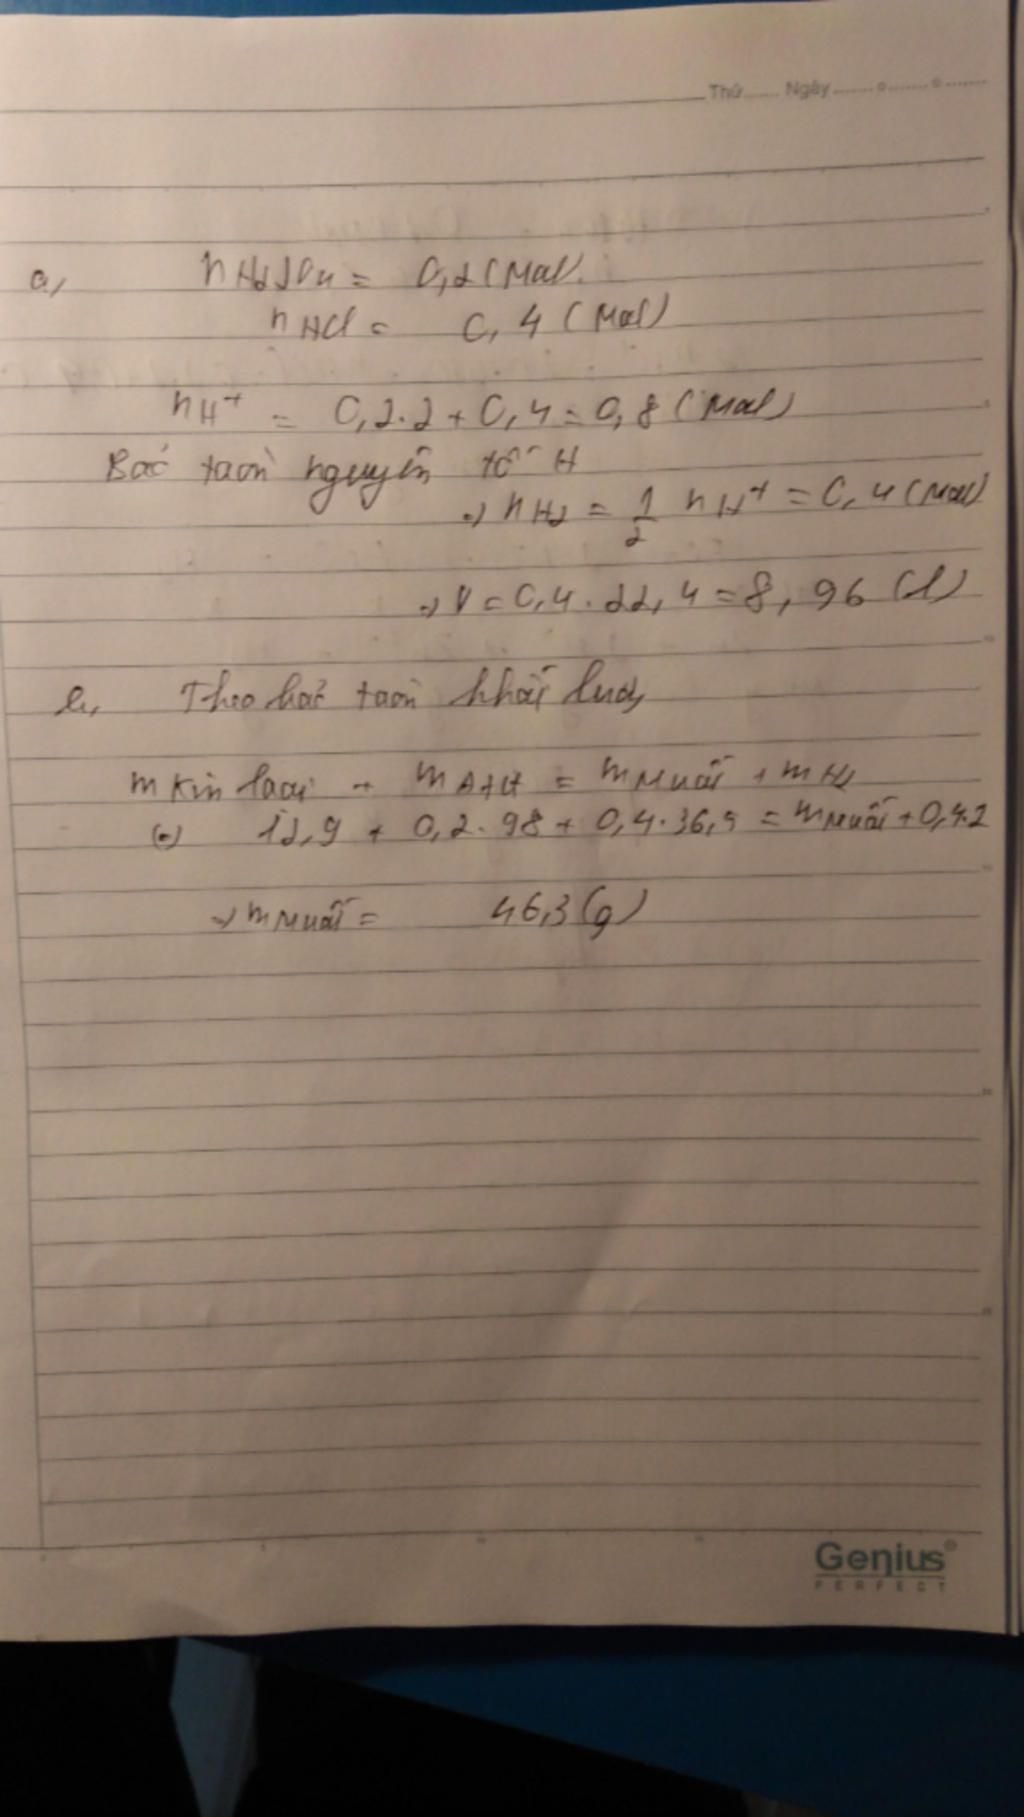 Thứ...... Ngày.......o.......o.......
a, nH2SO4 = 0,2 (Mol)
nHCl = 0,4 (Mol)
nH+ = 0,2.2 + 0,4 = 0,8 (Mol)
Bảo toàn nguyên tố H
=> nH2 = 1/2 nH+ = 0,4 (Mol)
=> V = 0,4.22,4 = 8,96 (l)
b, Theo bảo toàn khối lượng
m Kim loại + m Axit = m Muối + m H2
(=) 12,9 + 0,2.98 + 0,4.36,5 = m Muối + 0,4.2
=> m Muối = 46,3 (g)
Genius
PERFECT